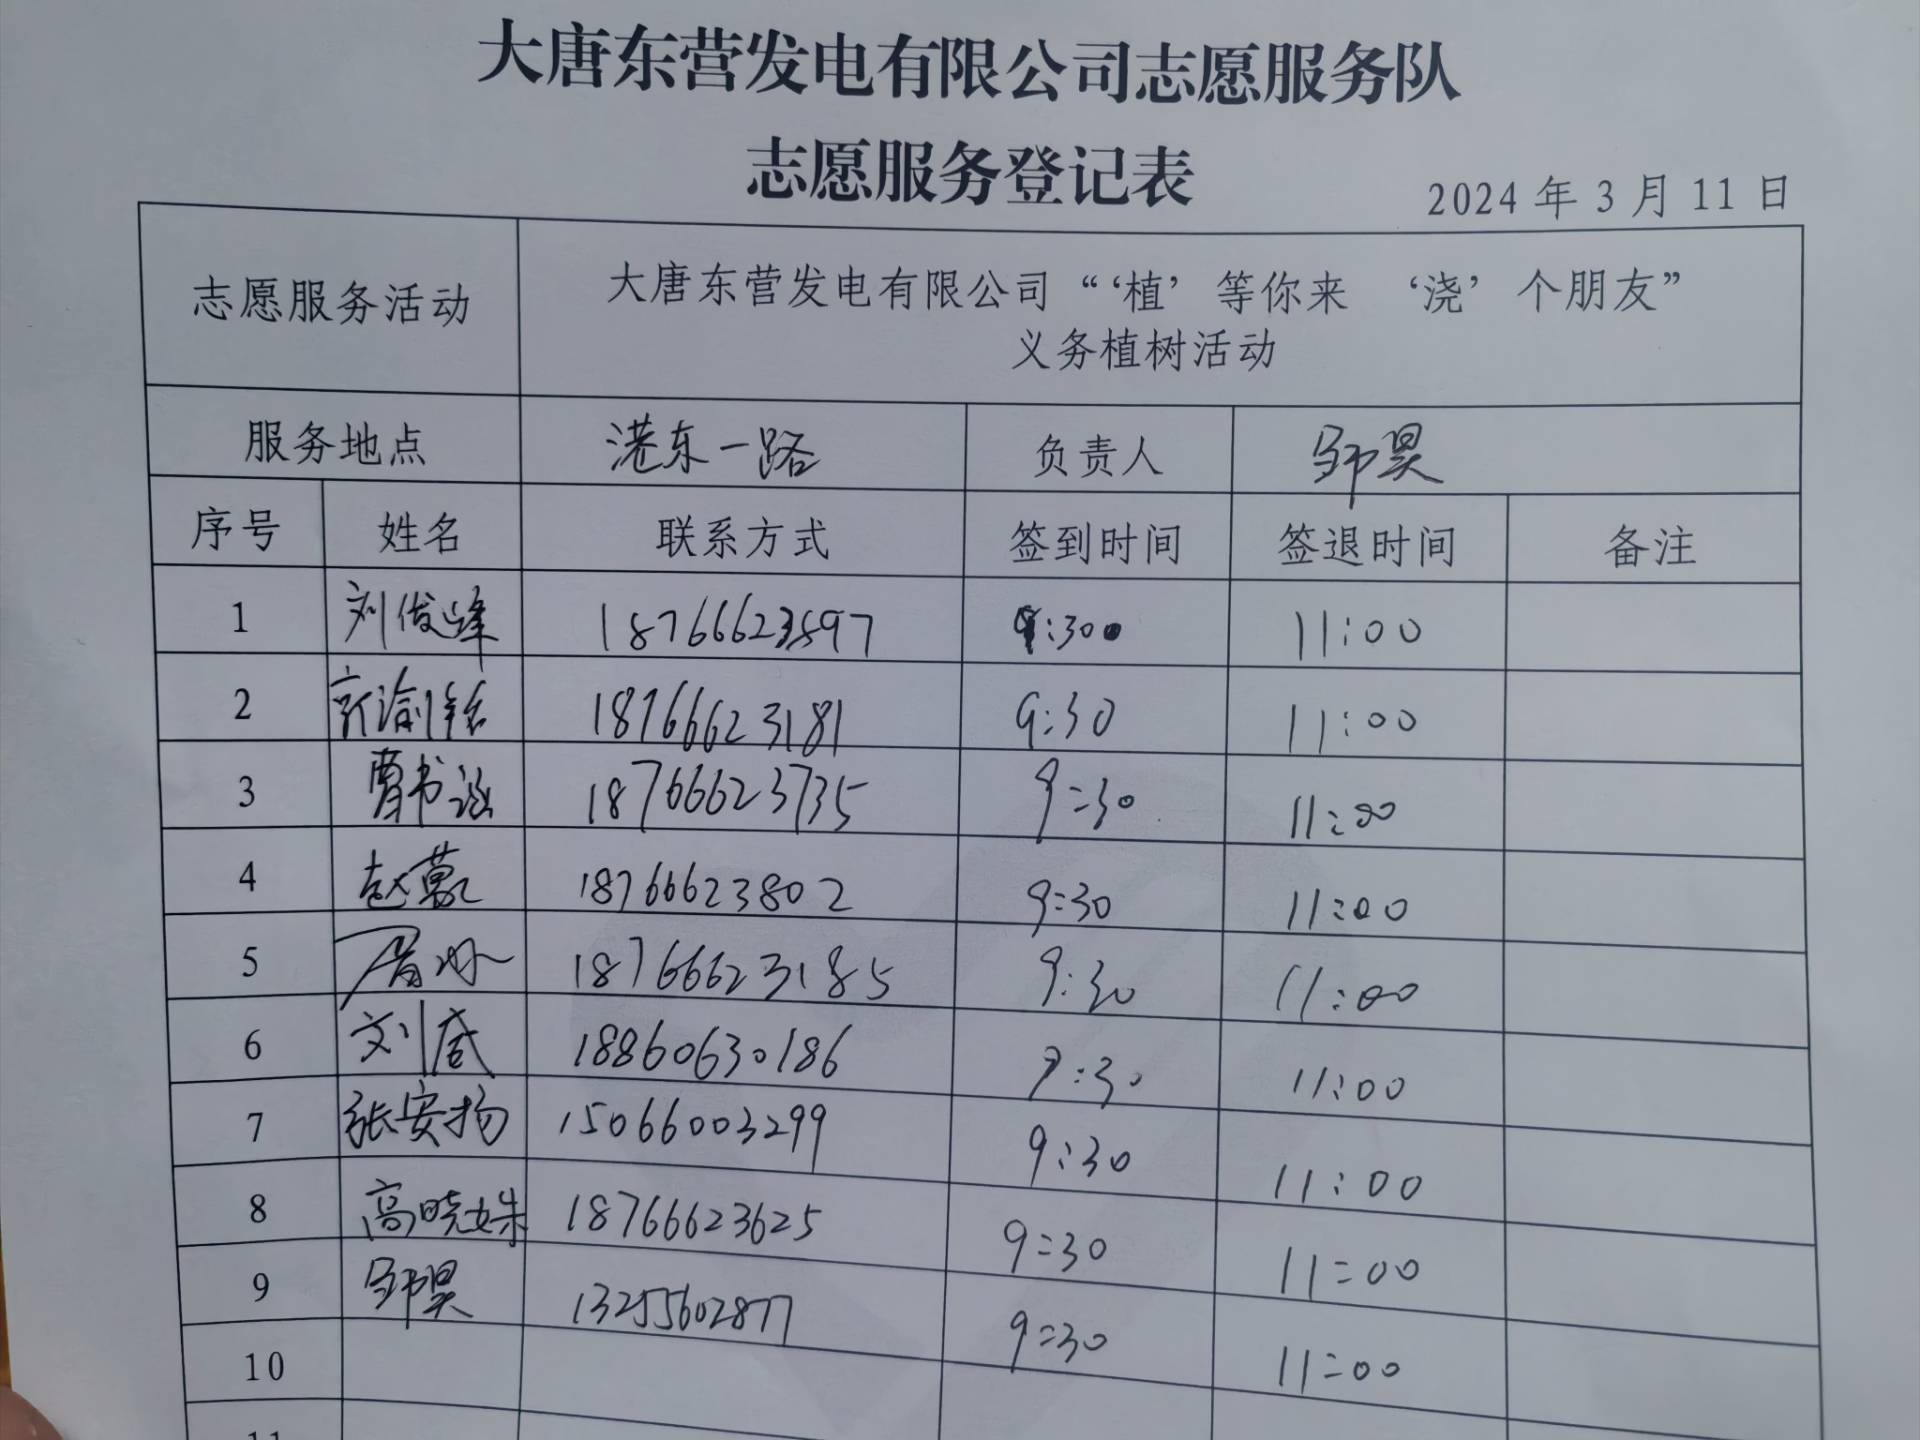 大唐东营发电有限公司志愿服务队
志愿服务登记表
2024年3月11日
志愿服务活动 大唐东营发电有限公司“‘植’等你来 ‘浇’个朋友”
义务植树活动
服务地点 港东一路 负责人 邹昊
序号 姓名 联系方式 签到时间 签退时间 备注
1 刘俊峰 18766623897 9:30 11:00
2 18766623181 9:30 11:00
3 曹书涵 18766623735 9:30 11:00
4 赵 18766623802 9:30 11:00
5 18766623185 9:30 11:00
6 刘 18860630186 9:30 11:00
7 张安扬 15066003299 9:30 11:00
8 高晓姝 18766623625 9:30 11:00
9 邹昊 13255602877 9:30 11:00
10